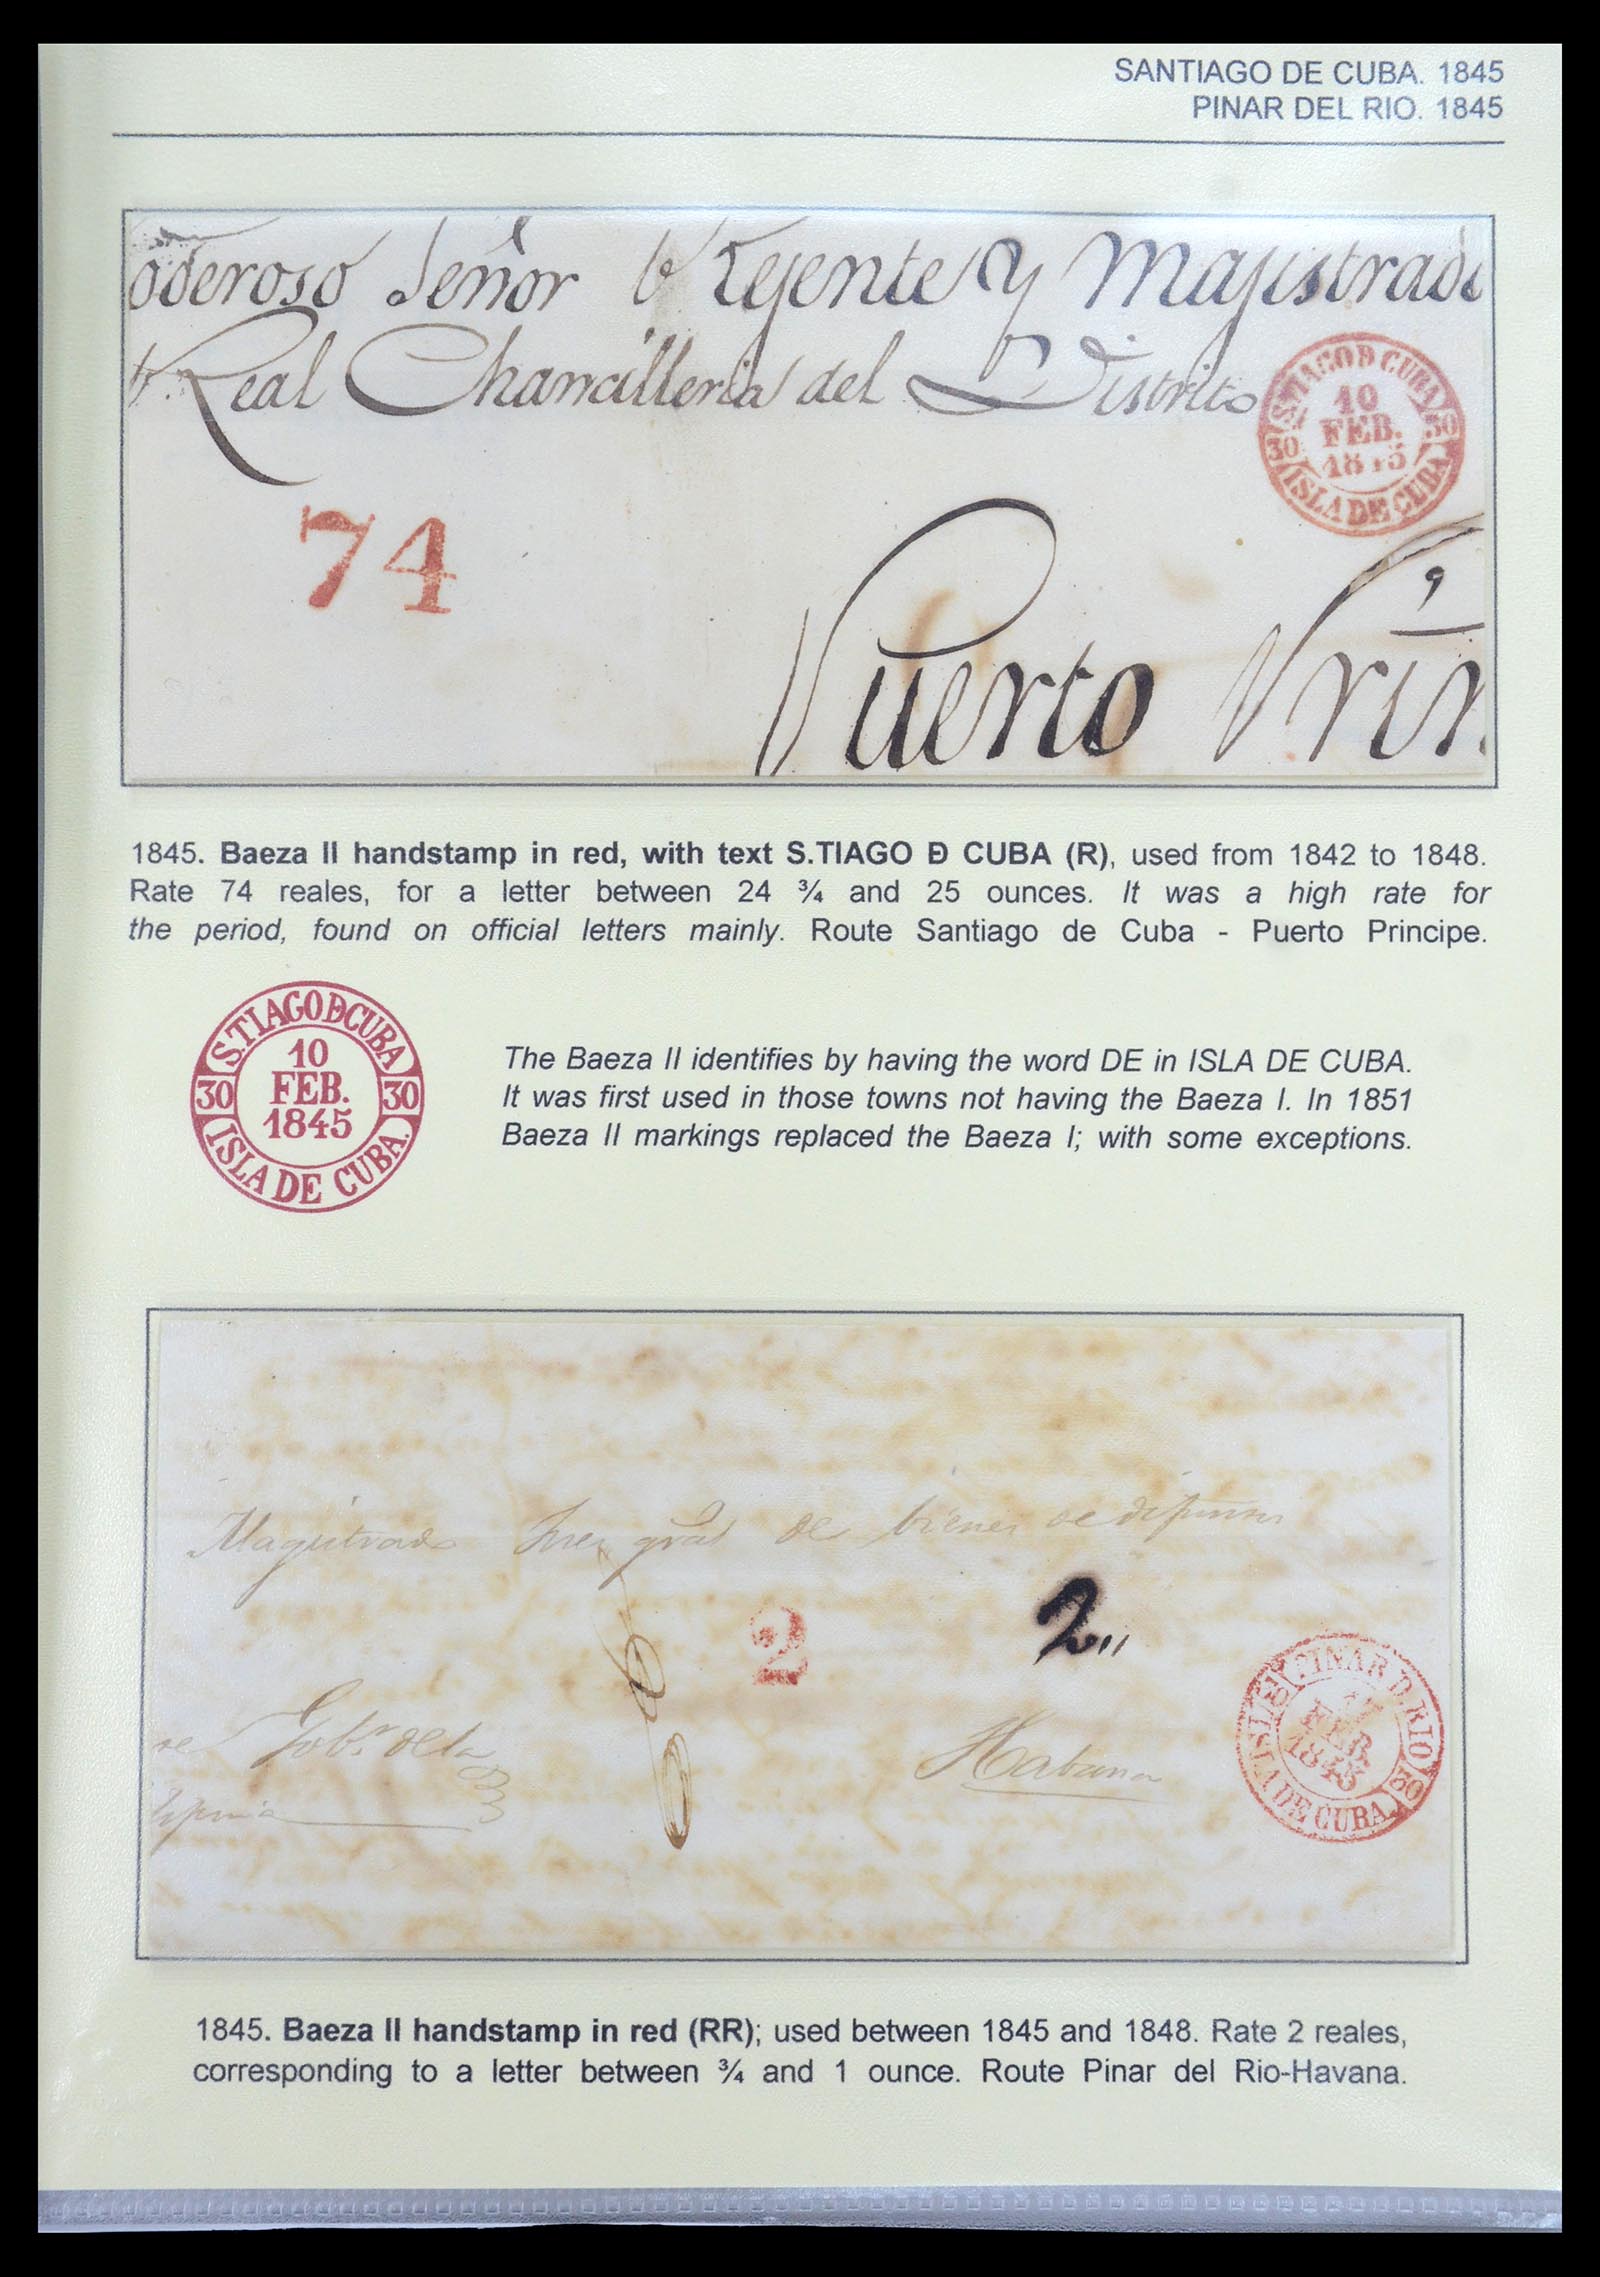 SANTIAGO DE CUBA. 1845
PINAR DEL RIO. 1845
oderoso Señor Rejente y Majistrado
Real Chancilleria del Distrito
S.TIAGO Đ CUBA
10
FEB.
1845
30 30
ISLA DE CUBA
74
Puerto Prin
1845. Baeza II handstamp in red, with text S.TIAGO Đ CUBA (R), used from 1842 to 1848.
Rate 74 reales, for a letter between 24 ¾ and 25 ounces. It was a high rate for
the period, found on official letters mainly. Route Santiago de Cuba - Puerto Principe.
S.TIAGO Đ CUBA
10
FEB.
1845
30 30
ISLA DE CUBA.
The Baeza II identifies by having the word DE in ISLA DE CUBA.
It was first used in those towns not having the Baeza I. In 1851
Baeza II markings replaced the Baeza I; with some exceptions.
Magistrado gral de bienes de difuntos
2
2
Gobr. de la
Habana
PINAR D. RIO
FEB
1845
30 30
ISLA DE CUBA.
1845. Baeza II handstamp in red (RR); used between 1845 and 1848. Rate 2 reales,
corresponding to a letter between ¾ and 1 ounce. Route Pinar del Rio-Havana.